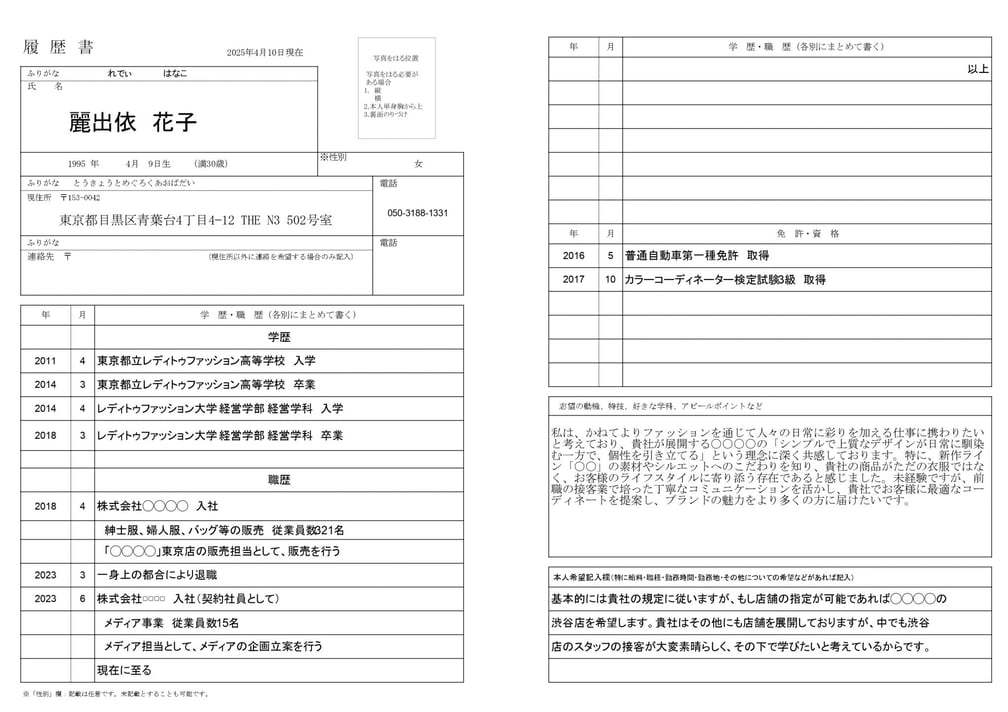 履 歴 書
2025年4月10日現在
写真をはる位置
写真をはる必要が
ある場合
1. 縦
横
2.本人単身胸から上
3.裏面のりづけ
ふりがな れでぃ はなこ
氏 名
麗出依 花子
1995 年 4月 9日生 (満30歳)
※性別
女
ふりがな とうきょうとめぐろくあおばだい
電話
現住所 〒153-0042
東京都目黒区青葉台4丁目4−12 THE N3 502号室
050-3188-1331
ふりがな
電話
連絡先 〒 (現住所以外に連絡を希望する場合のみ記入)
年 月 学 歴・職 歴(各別にまとめて書く)
学歴
2011 4 東京都立レディトゥファッション高等学校 入学
2014 3 東京都立レディトゥファッション高等学校 卒業
2014 4 レディトゥファッション大学 経営学部 経営学科 入学
2018 3 レディトゥファッション大学 経営学部 経営学科 卒業
職歴
2018 4 株式会社〇〇〇〇 入社
紳士服、婦人服、バッグ等の販売 従業員数321名
「〇〇〇〇」東京店の販売担当として、販売を行う
2023 3 一身上の都合により退職
2023 6 株式会社□□□□ 入社(契約社員として)
メディア事業 従業員数15名
メディア担当として、メディアの企画立案を行う
現在に至る
※「性別」欄：記載は任意です。未記載とすることも可能です。
年 月 学 歴・職 歴(各別にまとめて書く)
以上
年 月 免 許・資 格
2016 5 普通自動車第一種免許 取得
2017 10 カラーコーディネーター検定試験3級 取得
志望の動機、特技、好きな学科、アピールポイントなど
私は、かねてよりファッションを通じて人々の日常に彩りを加える仕事に携わりたい
と考えており、貴社が展開する〇〇〇〇の「シンプルで上質なデザインが日常に馴染
む一方で、個性を引き立てる」という理念に深く共感しております。特に、新作ライ
ン「〇〇」の素材やシルエットへのこだわりを知り、貴社の商品がただの衣服ではな
く、お客様のライフスタイルに寄り添う存在であると感じました。未経験ですが、前
職の接客業で培った丁寧なコミュニケーションを活かし、貴社でお客様に最適なコー
ディネートを提案し、ブランドの魅力をより多くの方に届けたいです。
本人希望記入欄(特に給料・職種・勤務時間・勤務地・その他についての希望などがあれば記入)
基本的には貴社の規定に従いますが、もし店舗の指定が可能であれば〇〇〇〇の
渋谷店を希望します。貴社はその他にも店舗を展開しておりますが、中でも渋谷
店のスタッフの接客が大変素晴らしく、その下で学びたいと考えているからです。